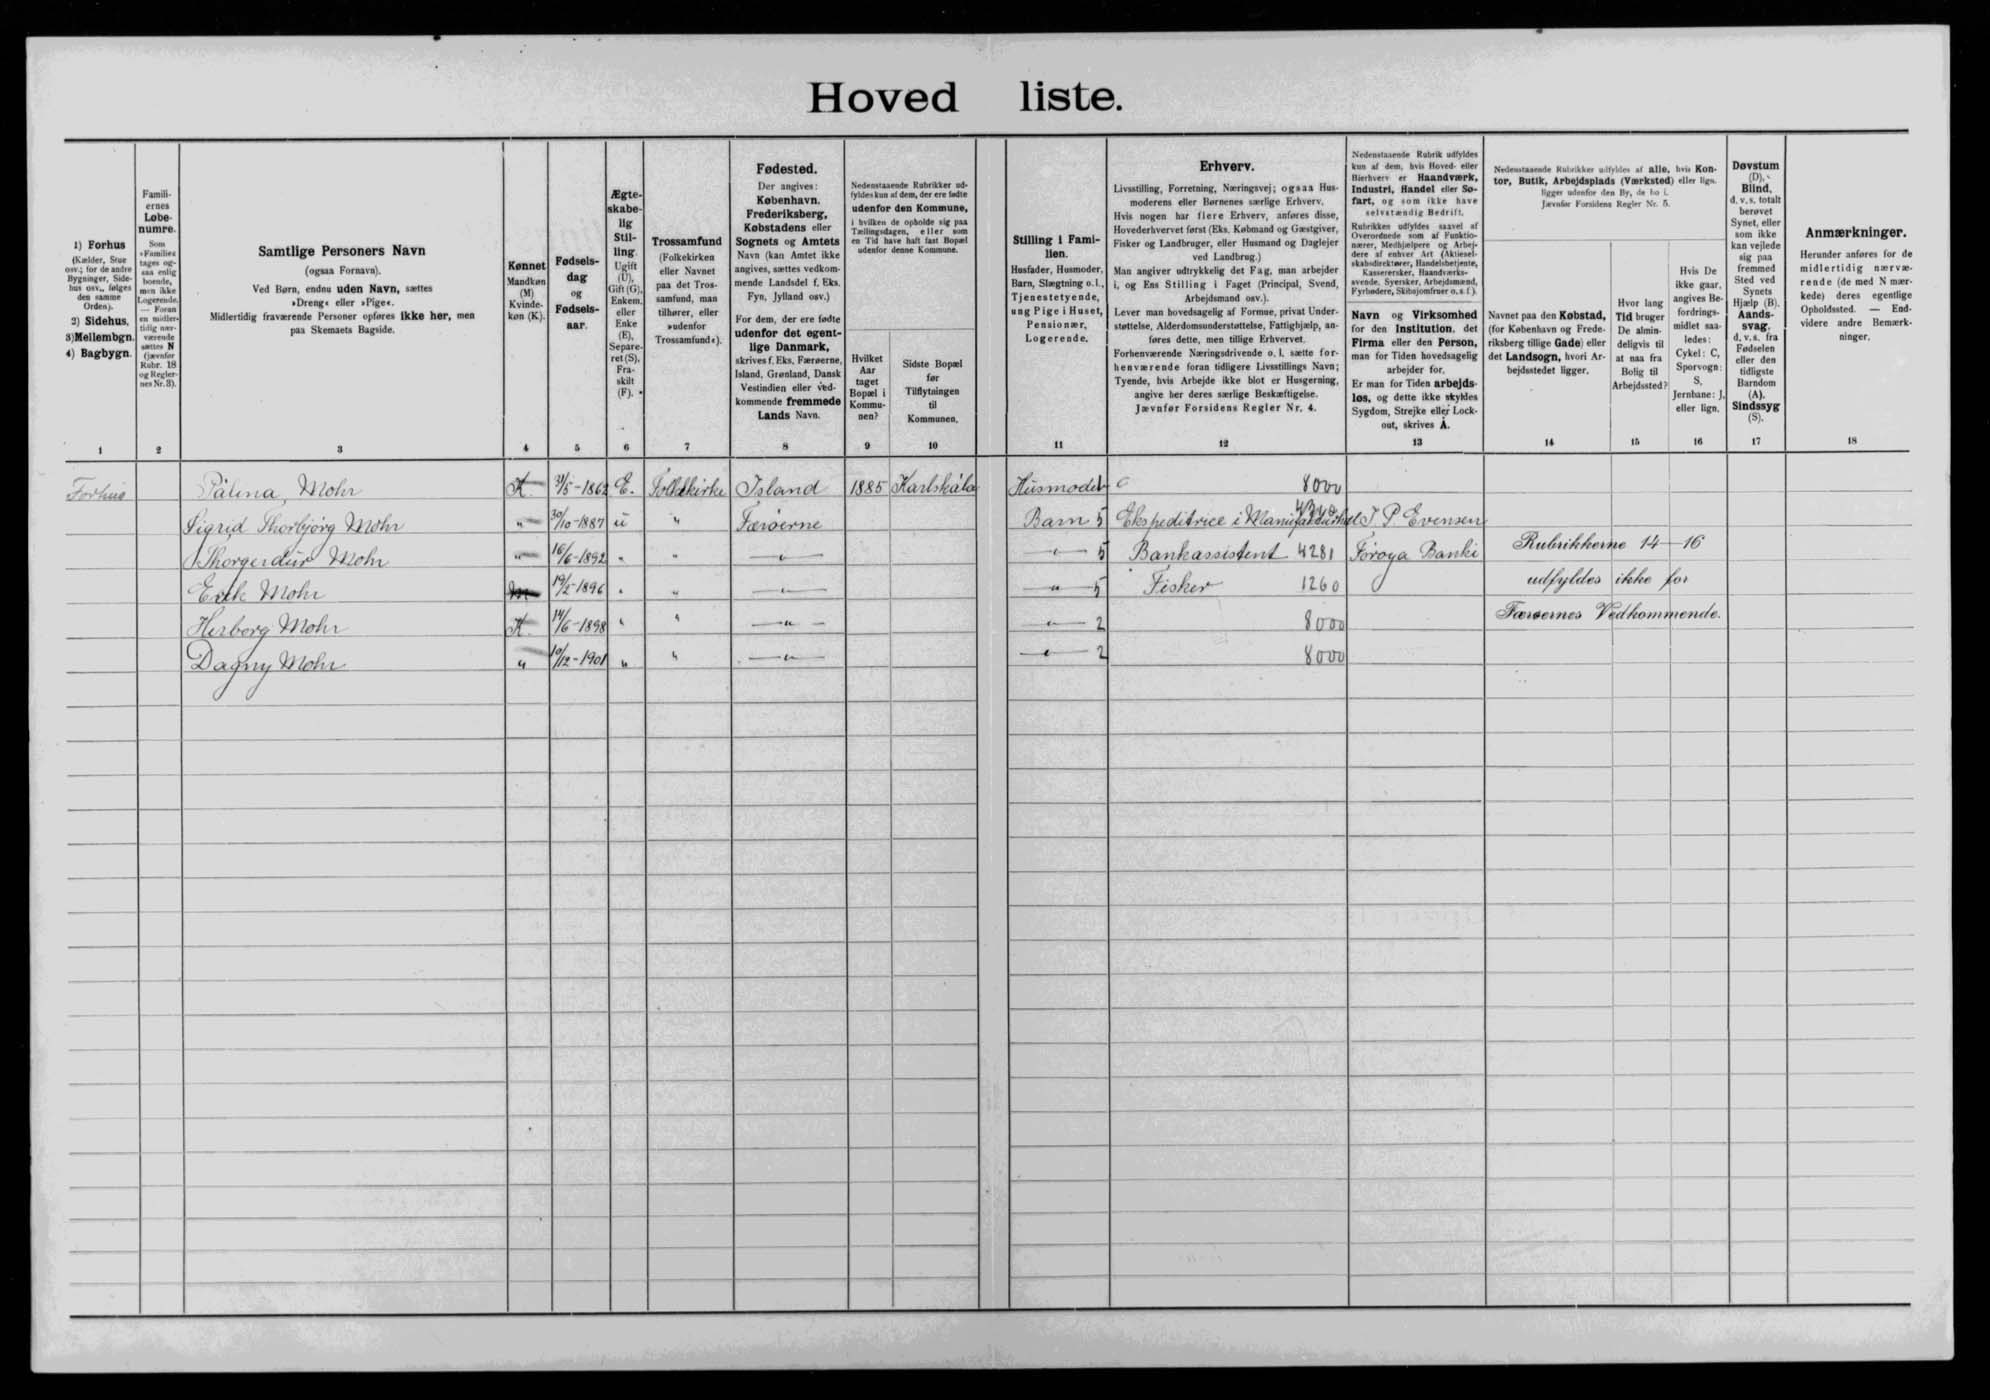 Hoved liste.
1) Forhus
(Kælder, Stue
osv.; for de andre
Bygninger, Side-
hus osv., følges
den samme
Orden).
2) Sidehus,
3) Mellembgn.
4) Bagbygn.
1
Famili-
ernes
Løbe-
numre.
Som
»Familie«
tages og-
saa enlig
boende,
men ikke
Logerende.
— Foran
en midler-
tidig nær-
værende
sættes N
(jævnfør
Rubr. 18
og Regler-
nes Nr. 3).
2
Samtlige Personers Navn
(ogsaa Fornavn).
Ved Børn, endnu uden Navn, sættes
»Dreng« eller »Pige«.
Midlertidig fraværende Personer opføres ikke her, men
paa Skemaets Bagside.
3
Kønnet
Mandkøn
(M)
Kvinde-
køn (K).
4
Fødsels-
dag
og
Fødsels-
aar.
5
Ægte-
skabe-
lig
Stil-
ling.
Ugift
(U),
Gift (G),
Enkem.
eller
Enke
(E),
Separe-
ret (S),
Fra-
skilt
(F).
6
Trossamfund
(Folkekirken
eller Navnet
paa det Tros-
samfund, man
tilhører, eller
»udenfor
Trossamfund«).
7
Fødested.
Der angives:
København.
Frederiksberg,
Købstadens eller
Sognets og Amtets
Navn (kan Amtet ikke
angives, sættes vedkom-
mende Landsdel f. Eks.
Fyn, Jylland osv.)
For dem, der ere fødte
udenfor det egent-
lige Danmark,
skrives f. Eks. Færøerne,
Island, Grønland, Dansk
Vestindien eller ved-
kommende fremmede
Lands Navn.
8
Nedenstaaende Rubrikker ud-
fyldes kun af dem, der ere fødte
udenfor den Kommune,
i hvilken de opholde sig paa
Tællingsdagen, eller som
en Tid have haft fast Bopæl
udenfor denne Kommune.
Hvilket
Aar
taget
Bopæl i
Kommu-
nen?
9
Sidste Bopæl
før
Tilflytningen
til
Kommunen.
10
Stilling i Fami-
lien.
Husfader, Husmoder,
Barn, Slægtning o. l.,
Tjenestetyende,
ung Pige i Huset,
Pensionær,
Logerende.
11
Erhverv.
Livsstilling, Forretning, Næringsvej; ogsaa Hus-
moderens eller Børnenes særlige Erhverv.
Hvis nogen har flere Erhverv, anføres disse,
Hovederhvervet først (Eks. Købmand og Gæstgiver,
Fisker og Landbruger, eller Husmand og Daglejer
ved Landbrug.)
Man angiver udtrykkelig det Fag, man arbejder
i, og Ens Stilling i Faget (Principal, Svend,
Arbejdsmand osv.).
Lever man hovedsagelig af Formue, privat Under-
støttelse, Alderdomsunderstøttelse, Fattighjælp, an-
føres dette, men tillige Erhvervet.
Forhenværende Næringsdrivende o. l. sætte for-
henværende foran tidligere Livsstillings Navn;
Tyende, hvis Arbejde ikke blot er Husgerning,
angive her deres særlige Beskæftigelse.
Jævnfør Forsidens Regler Nr. 4.
12
Nedenstaaende Rubrik udfyldes
kun af dem, hvis Hoved- eller
Bierhverv er Haandværk,
Industri, Handel eller Sø-
fart, og som ikke have
selvstændig Bedrift.
Rubrikken udfyldes saavel af
Overordnede som af Funktio-
nærer, Medhjælpere og Arbej-
dere af enhver Art (Aktiesel-
skabsdirektører, Handelsbetjente,
Kasserersker, Haandværks-
svende, Syersker, Arbejdsmænd,
Fyrbødere, Skibsjomfruer o. s. f.).
Navn og Virksomhed
for den Institution, det
Firma eller den Person,
man for Tiden hovedsagelig
arbejder for.
Er man for Tiden arbejds-
løs, og dette ikke skyldes
Sygdom, Strejke eller Lock-
out, skrives A.
13
Nedenstaaende Rubrikker udfyldes af alle, hvis Kon-
tor, Butik, Arbejdsplads (Værksted) eller lign.
ligger udenfor den By, de bo i.
Jævnfør Forsidens Regler Nr. 5.
Navnet paa den Købstad,
(for København og Frede-
riksberg tillige Gade) eller
det Landsogn, hvori Ar-
bejdsstedet ligger.
14
Hvor lang
Tid bruger
De almin-
deligvis til
at naa fra
Bolig til
Arbejdssted?
15
Hvis De
ikke gaar,
angives Be-
fordrings-
midlet saa-
ledes:
Cykel: C,
Sporvogn:
S,
Jernbane: J,
eller lign.
16
Døvstum
(D),
Blind,
d. v. s. totalt
berøvet
Synet, eller
som ikke
kan vejlede
sig paa
fremmed
Sted ved
Synets
Hjælp (B).
Aands-
svag,
d. v. s. fra
Fødselen
eller den
tidligste
Barndom
(A).
Sindssyg
(S).
17
Anmærkninger.
Herunder anføres for de
midlertidig nærvæ-
rende (de med N mær-
kede) deres egentlige
Opholdssted. — End-
videre andre Bemærk-
ninger.
18
Forhus Pálina, Mohr K. 31/5-1862 E. Folkekirke Island 1885 Karlskála Husmoder 8000
Sigrid Thorbjörg Mohr " 30/10-1887 u " Færøerne Barn 5 Ekspeditrice i J. P. Evensen
Thorgerdur Mohr " 16/6-1892 " " — " — — " — 5 Bankassistent 4281 Föroya Banki
Erik Mohr M 19/2-1896 " " — " — — " — 5 Fisker 1260
Herborg Mohr K. 14/6-1898 " " — " — — " — 2 8000
Dagny Mohr " 10/12-1901 " " — " — — " — 2 8000
Rubrikkerne 14—16
udfyldes ikke for
Færøernes Vedkommende.